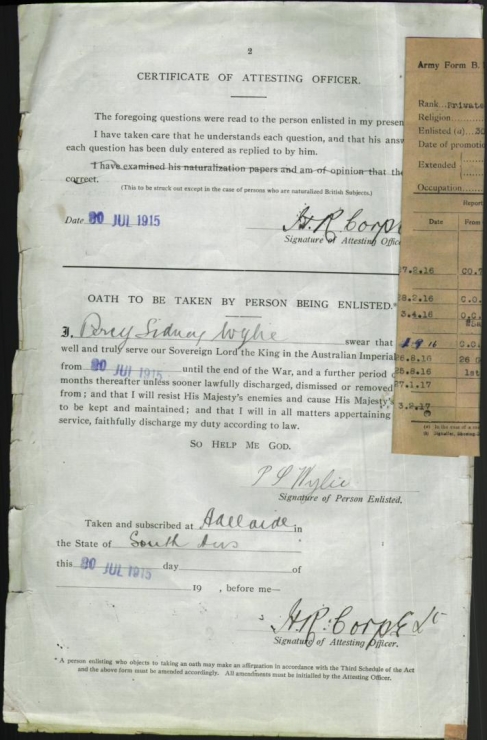 2
CERTIFICATE OF ATTESTING OFFICER.
The foregoing questions were read to the person enlisted in my presen
I have taken care that he understands each question, and that his answ
each question has been duly entered as replied to by him.
I have examined his naturalization papers and am of opinion that the
correct.
(This to be struck out except in the case of persons who are naturalized British Subjects.)
Date 20 JUL 1915
H. R. Corp
Signature of Attesting Office
OATH TO BE TAKEN BY PERSON BEING ENLISTED.*
I, Percy Sidney Wylie swear that
well and truly serve our Sovereign Lord the King in the Australian Imperial
from 20 JUL 1915 until the end of the War, and a further period
months thereafter unless sooner lawfully discharged, dismissed or removed
from; and that I will resist His Majesty's enemies and cause His Majesty's
to be kept and maintained; and that I will in all matters appertaining
service, faithfully discharge my duty according to law.
SO HELP ME GOD.
P S Wylie
Signature of Person Enlisted.
Taken and subscribed at Adelaide in
the State of South Aus
this 20 JUL 1915 day of
19 , before me—
H. R. Corp Lt
Signature of Attesting Officer.
* A person enlisting who objects to taking an oath may make an affirmation in accordance with the Third Schedule of the Act
and the above form must be amended accordingly. All amendments must be initialled by the Attesting Officer.
Army Form B.
Rank Private
Religion
Enlisted (a) 30
Date of promotio
Extended
Occupation
Report
Date From
27.2.16 CO.
28.2.16 C.O.
3.4.16 O.C.
C.O.
26.8.16 26
25.8.16 1st
27.1.17
3.2.17